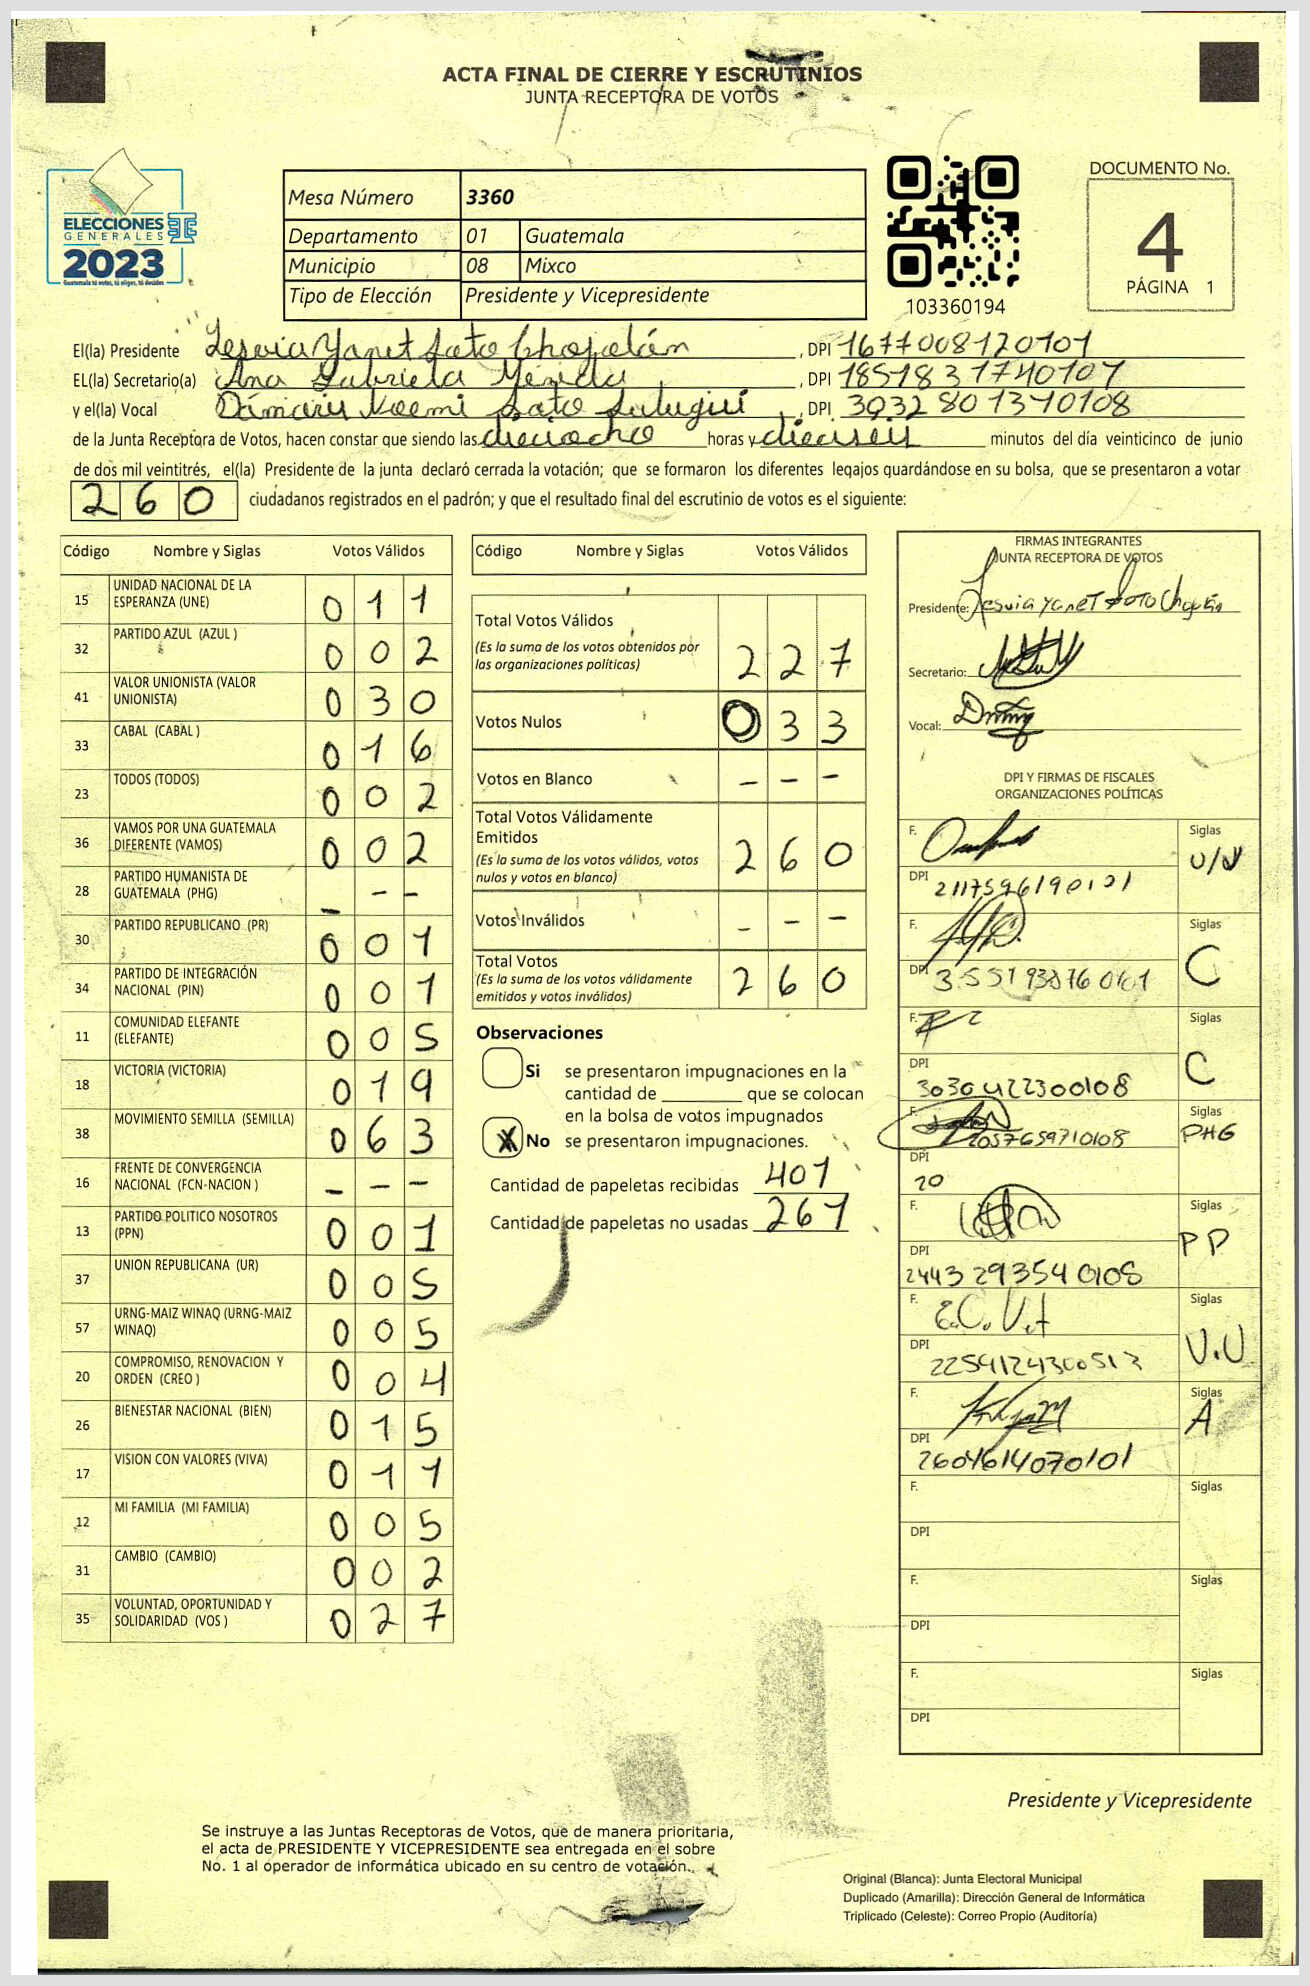 ACTA FINAL DE CIERRE Y ESCRUTINIOS
JUNTA RECEPTORA DE VOTOS
ELECCIONES
GENERALES
2023
Guatemala tú votas, tú eliges, tú decides
Mesa Número 3360
Departamento 01 Guatemala
Municipio 08 Mixco
Tipo de Elección Presidente y Vicepresidente
103360194
DOCUMENTO No.
4
PÁGINA 1
El(la) Presidente Lesvia Yanet Soto, DPI 1677008120101
EL(la) Secretario(a) Ana Gabriela, DPI 1851831740107
y el(la) Vocal Dámaris Noemi Soto, DPI 3032801340108
de la Junta Receptora de Votos, hacen constar que siendo las dieciocho horas y dieciseis minutos del día veinticinco de junio
de dos mil veintitrés, el(la) Presidente de la junta declaró cerrada la votación; que se formaron los diferentes legajos quardándose en su bolsa, que se presentaron a votar
260 ciudadanos registrados en el padrón; y que el resultado final del escrutinio de votos es el siguiente:
Código Nombre y Siglas Votos Válidos
15 UNIDAD NACIONAL DE LA ESPERANZA (UNE) 011
32 PARTIDO AZUL (AZUL ) 002
41 VALOR UNIONISTA (VALOR UNIONISTA) 030
33 CABAL (CABAL ) 016
23 TODOS (TODOS) 002
36 VAMOS POR UNA GUATEMALA DIFERENTE (VAMOS) 002
28 PARTIDO HUMANISTA DE GUATEMALA (PHG) - - -
30 PARTIDO REPUBLICANO (PR) 001
34 PARTIDO DE INTEGRACIÓN NACIONAL (PIN) 001
11 COMUNIDAD ELEFANTE (ELEFANTE) 005
18 VICTORIA (VICTORIA) 019
38 MOVIMIENTO SEMILLA (SEMILLA) 063
16 FRENTE DE CONVERGENCIA NACIONAL (FCN-NACION ) - - -
13 PARTIDO POLITICO NOSOTROS (PPN) 001
37 UNION REPUBLICANA (UR) 005
57 URNG-MAIZ WINAQ (URNG-MAIZ WINAQ) 005
20 COMPROMISO, RENOVACION Y ORDEN (CREO ) 004
26 BIENESTAR NACIONAL (BIEN) 015
17 VISION CON VALORES (VIVA) 011
12 MI FAMILIA (MI FAMILIA) 005
31 CAMBIO (CAMBIO) 002
35 VOLUNTAD, OPORTUNIDAD Y SOLIDARIDAD (VOS ) 027
Código Nombre y Siglas Votos Válidos
Total Votos Válidos
(Es la suma de los votos obtenidos por
las organizaciones políticas) 227
Votos Nulos 033
Votos en Blanco - - -
Total Votos Válidamente
Emitidos
(Es la suma de los votos válidos, votos
nulos y votos en blanco) 260
Votos Inválidos - - -
Total Votos
(Es la suma de los votos válidamente
emitidos y votos inválidos) 260
Observaciones
Si se presentaron impugnaciones en la
cantidad de ________ que se colocan
en la bolsa de votos impugnados
X No se presentaron impugnaciones.
Cantidad de papeletas recibidas 401
Cantidad de papeletas no usadas 267
FIRMAS INTEGRANTES
JUNTA RECEPTORA DE VOTOS
Presidente: Lesvia Yanet Soto
Secretario:
Vocal:
DPI Y FIRMAS DE FISCALES
ORGANIZACIONES POLÍTICAS
F. Siglas
DPI 2117596190101
F. Siglas C
DPI 3551938760101
F. Siglas C
DPI 3030422300108
F. Siglas PHG
2057659710108
DPI 20
F. Siglas PP
DPI 2443293540108
F. Siglas V.U
DPI 2259124300513
F. Siglas A
DPI 2604614070101
F. Siglas
DPI
F. Siglas
DPI
F. Siglas
DPI
Presidente y Vicepresidente
Se instruye a las Juntas Receptoras de Votos, que de manera prioritaria,
el acta de PRESIDENTE Y VICEPRESIDENTE sea entregada en el sobre
No. 1 al operador de informática ubicado en su centro de votación.
Original (Blanca): Junta Electoral Municipal
Duplicado (Amarilla): Dirección General de Informática
Triplicado (Celeste): Correo Propio (Auditoría)